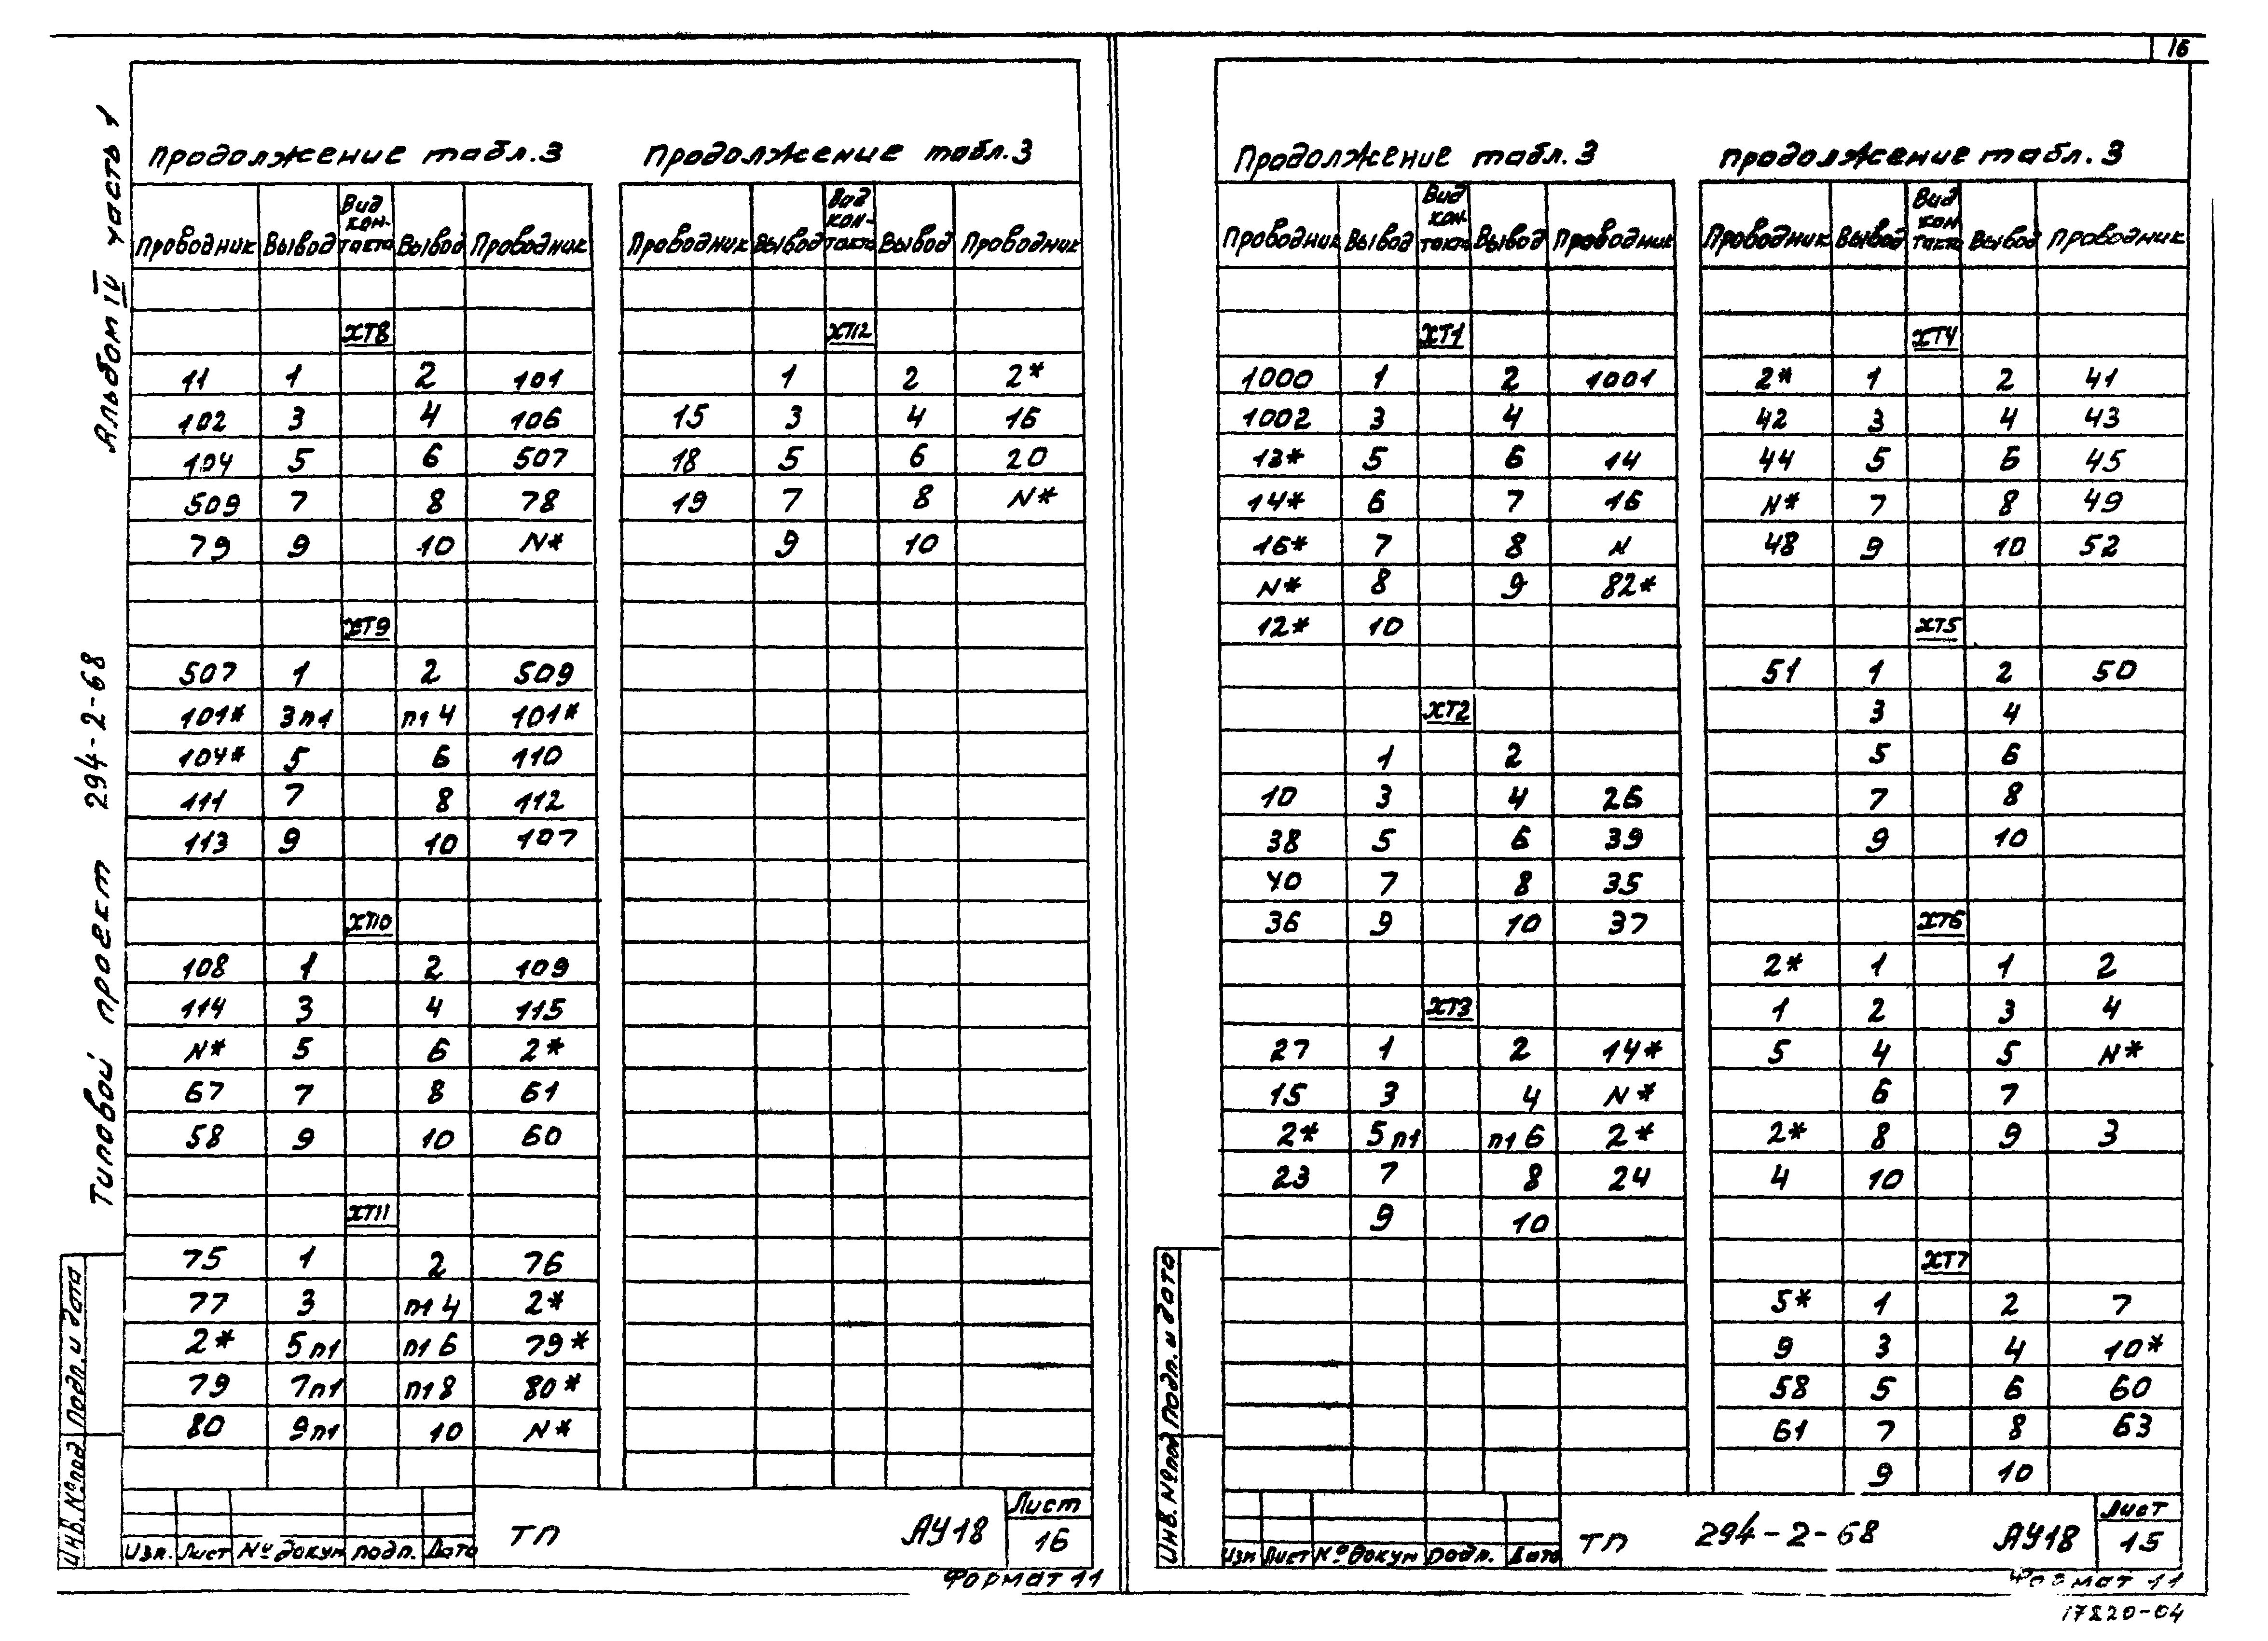 16
Альбом IV часть 1
Типовой проект 294-2-68
Продолжение табл. 3
Проводник Вывод Вид кон-такта Вывод Проводник
ХТ8
11 1 2 101
102 3 4 106
104 5 6 507
509 7 8 78
79 9 10 N*
ХТ9
507 1 2 509
101* 3п1 п14 101*
104* 5 6 110
111 7 8 112
113 9 10 107
ХТ10
108 1 2 109
114 3 4 115
N* 5 6 2*
67 7 8 61
58 9 10 60
ХТ11
75 1 2 76
77 3 п14 2*
2* 5п1 п16 79*
79 7п1 п18 80*
80 9п1 10 N*
Продолжение табл. 3
Проводник Вывод Вид кон-такта Вывод Проводник
ХТ12
1 2 2*
15 3 4 16
18 5 6 20
19 7 8 N*
9 10
Инв. № под Подп. и дата
Изм. Лист № докум подп. Дата
ТП АУ18
Лист
16
Формат 11
Продолжение табл. 3
Проводник Вывод Вид кон-такта Вывод Проводник
ХТ1
1000 1 2 1001
1002 3 4
13* 5 6 14
14* 6 7 16
16* 7 8 N
N* 8 9 82*
12* 10
ХТ2
1 2
10 3 4 26
38 5 6 39
40 7 8 35
36 9 10 37
ХТ3
27 1 2 14*
15 3 4 N*
2* 5п1 п16 2*
23 7 8 24
9 10
Продолжение табл. 3
Проводник Вывод Вид кон такта Вывод Проводник
ХТ4
2* 1 2 41
42 3 4 43
44 5 6 45
N* 7 8 49
48 9 10 52
ХТ5
51 1 2 50
3 4
5 6
7 8
9 10
ХТ6
2* 1 1 2
1 2 3 4
5 4 5 N*
6 7
2* 8 9 3
4 10
ХТ7
5* 1 2 7
9 3 4 10*
58 5 6 60
61 7 8 63
9 10
Инв. № подл Подп. и дата
Изм Лист № докум Подп. Дата
ТП 294-2-68 АУ18
Лист
15
Формат 11
17820-04